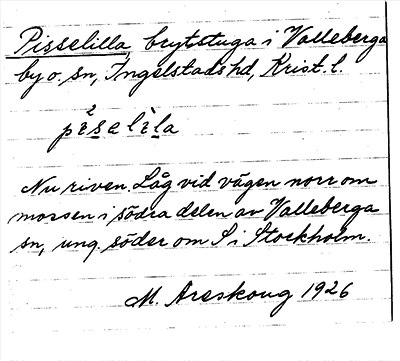 Pisselilla, brytstuga i Valleberga
by o. sn, Ingelstads hd, Krist. l.
pi²selìla
Nu riven. Låg vid vägen norr om
mossen i södra delen av Valleberga
sn, ung. söder om S i Stockholm.
M. Areskoug 1926